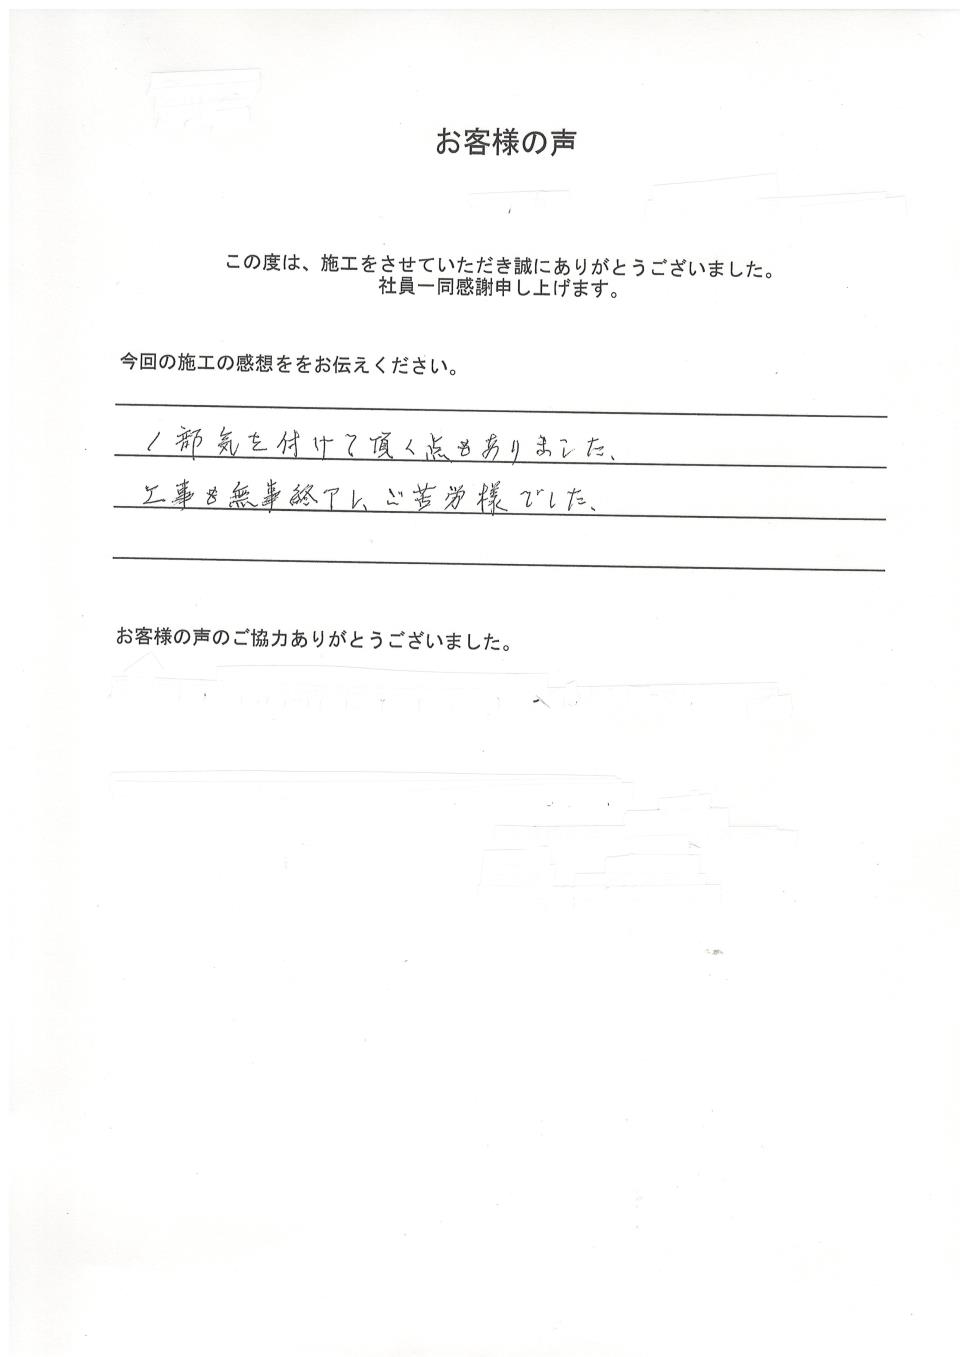 お客様の声
この度は、施工をさせていただき誠にありがとうございました。
社員一同感謝申し上げます。
今回の施工の感想ををお伝えください。
1部気を付けて頂く点もありました、
工事も無事終了し、ご苦労様でした、
お客様の声のご協力ありがとうございました。